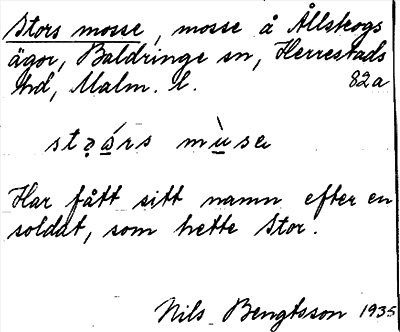 Stors mosse, mosse å Ållskogs
ägor, Baldringe sn, Herrestads
hd, Malm. l. 82a
stəɷ́rs mùsa
Har fått sitt namn efter en
soldat, som hette Stor.
Nils Bengtsson 1935